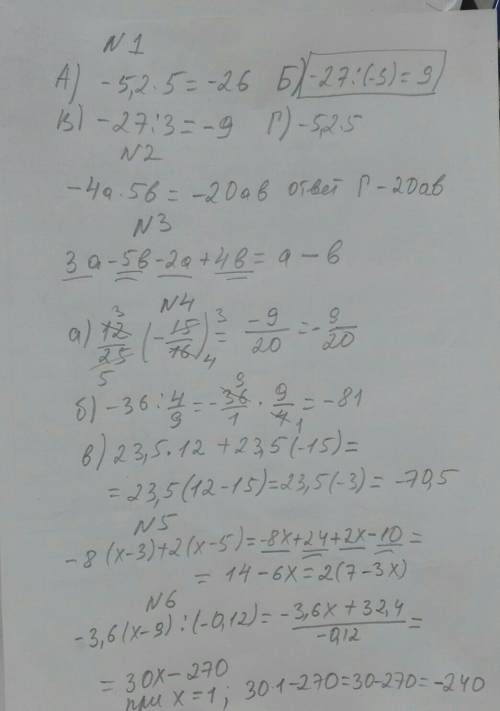 N1
А) -5,2·5=-26 Б) -27:(-3)=9
В) -27:3=-9 Г) -5,2·5
N2
-4a·5b=-20ab ответ Г-20ab
N3
3a-5b-2a+4b=a-b
N4
а) 12/25 (-15/16) = -9/20 = -9/20
б) -36:4/9=-36/1·9/4=-81
в) 23,5·12+23,5(-15)=
=23,5(12-15)=23,5(-3)=-70,5
N5
-8(x-3)+2(x-5)=-8x+24+2x-10=
=14-6x=2(7-3x)
N6
-3,6(x-9):(-0,12)=-3,6x+32,4/-0,12=
=30x-270
при x=1; 30·1-270=30-270=-240